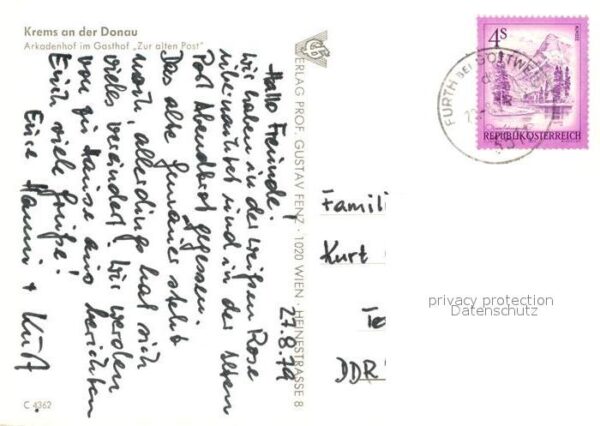 Krems an der Donau
Arkadenhof im Gasthof „Zur alten Post"
VERLAG PROF. GUSTAV FENZ · 1020 WIEN · HEINESTRASSE 8
27.8.79
Hallo Freunde!
Wir haben in der weißen Rose
übernachtet und in der alten
Post Abendbrot gegessen.
Das alte Gemäuer steht
noch, allerdings hat sich
vieles verändert. Wir werden
von zu Hause aus berichten
Euch viele Grüße!
Eure Hanni + Kurt
C 4362
4S
REPUBLIK ÖSTERREICH
FURTH BEI GÖTTWEIG
Famili
Kurt
Te
DDR
privacy protection
Datenschutz